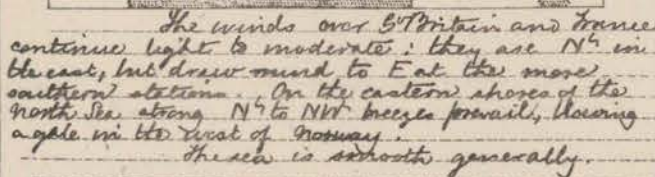 The winds over Gt Britain and France
continue light to moderate: they are Nly in
the east, but draw round to E at the more
southern stations. On the eastern shores of the
North Sea strong Nly to NW breezes prevail, blowing
a gale in the west of Norway.
The sea is smooth generally.